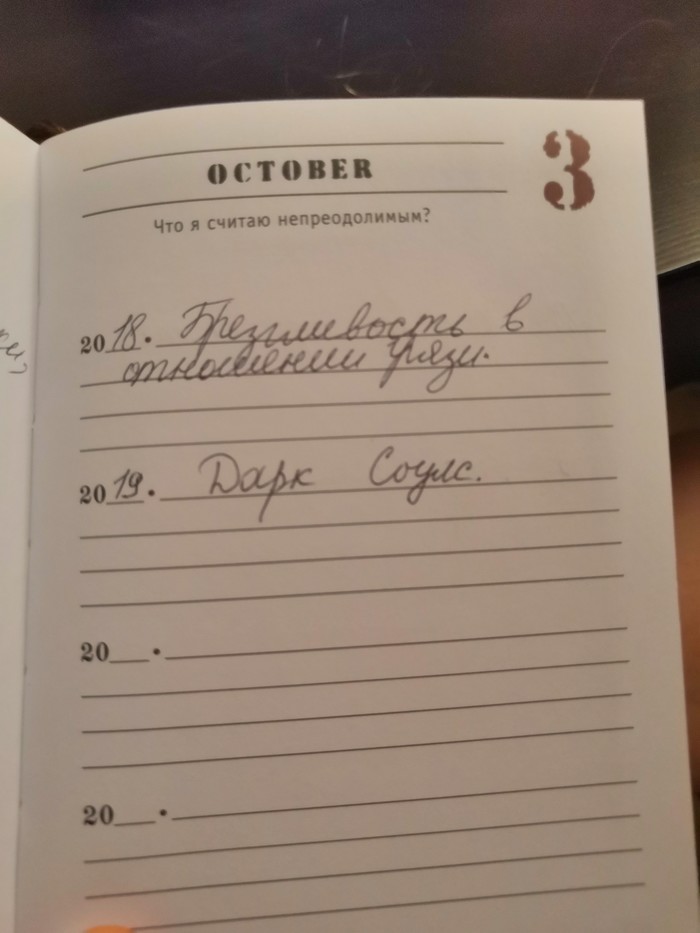 OCTOBER
3
Что я считаю непреодолимым?
2018. Брезгливость в
отношении грязи.
2019. Дарк Соулс.
20__.
20__.